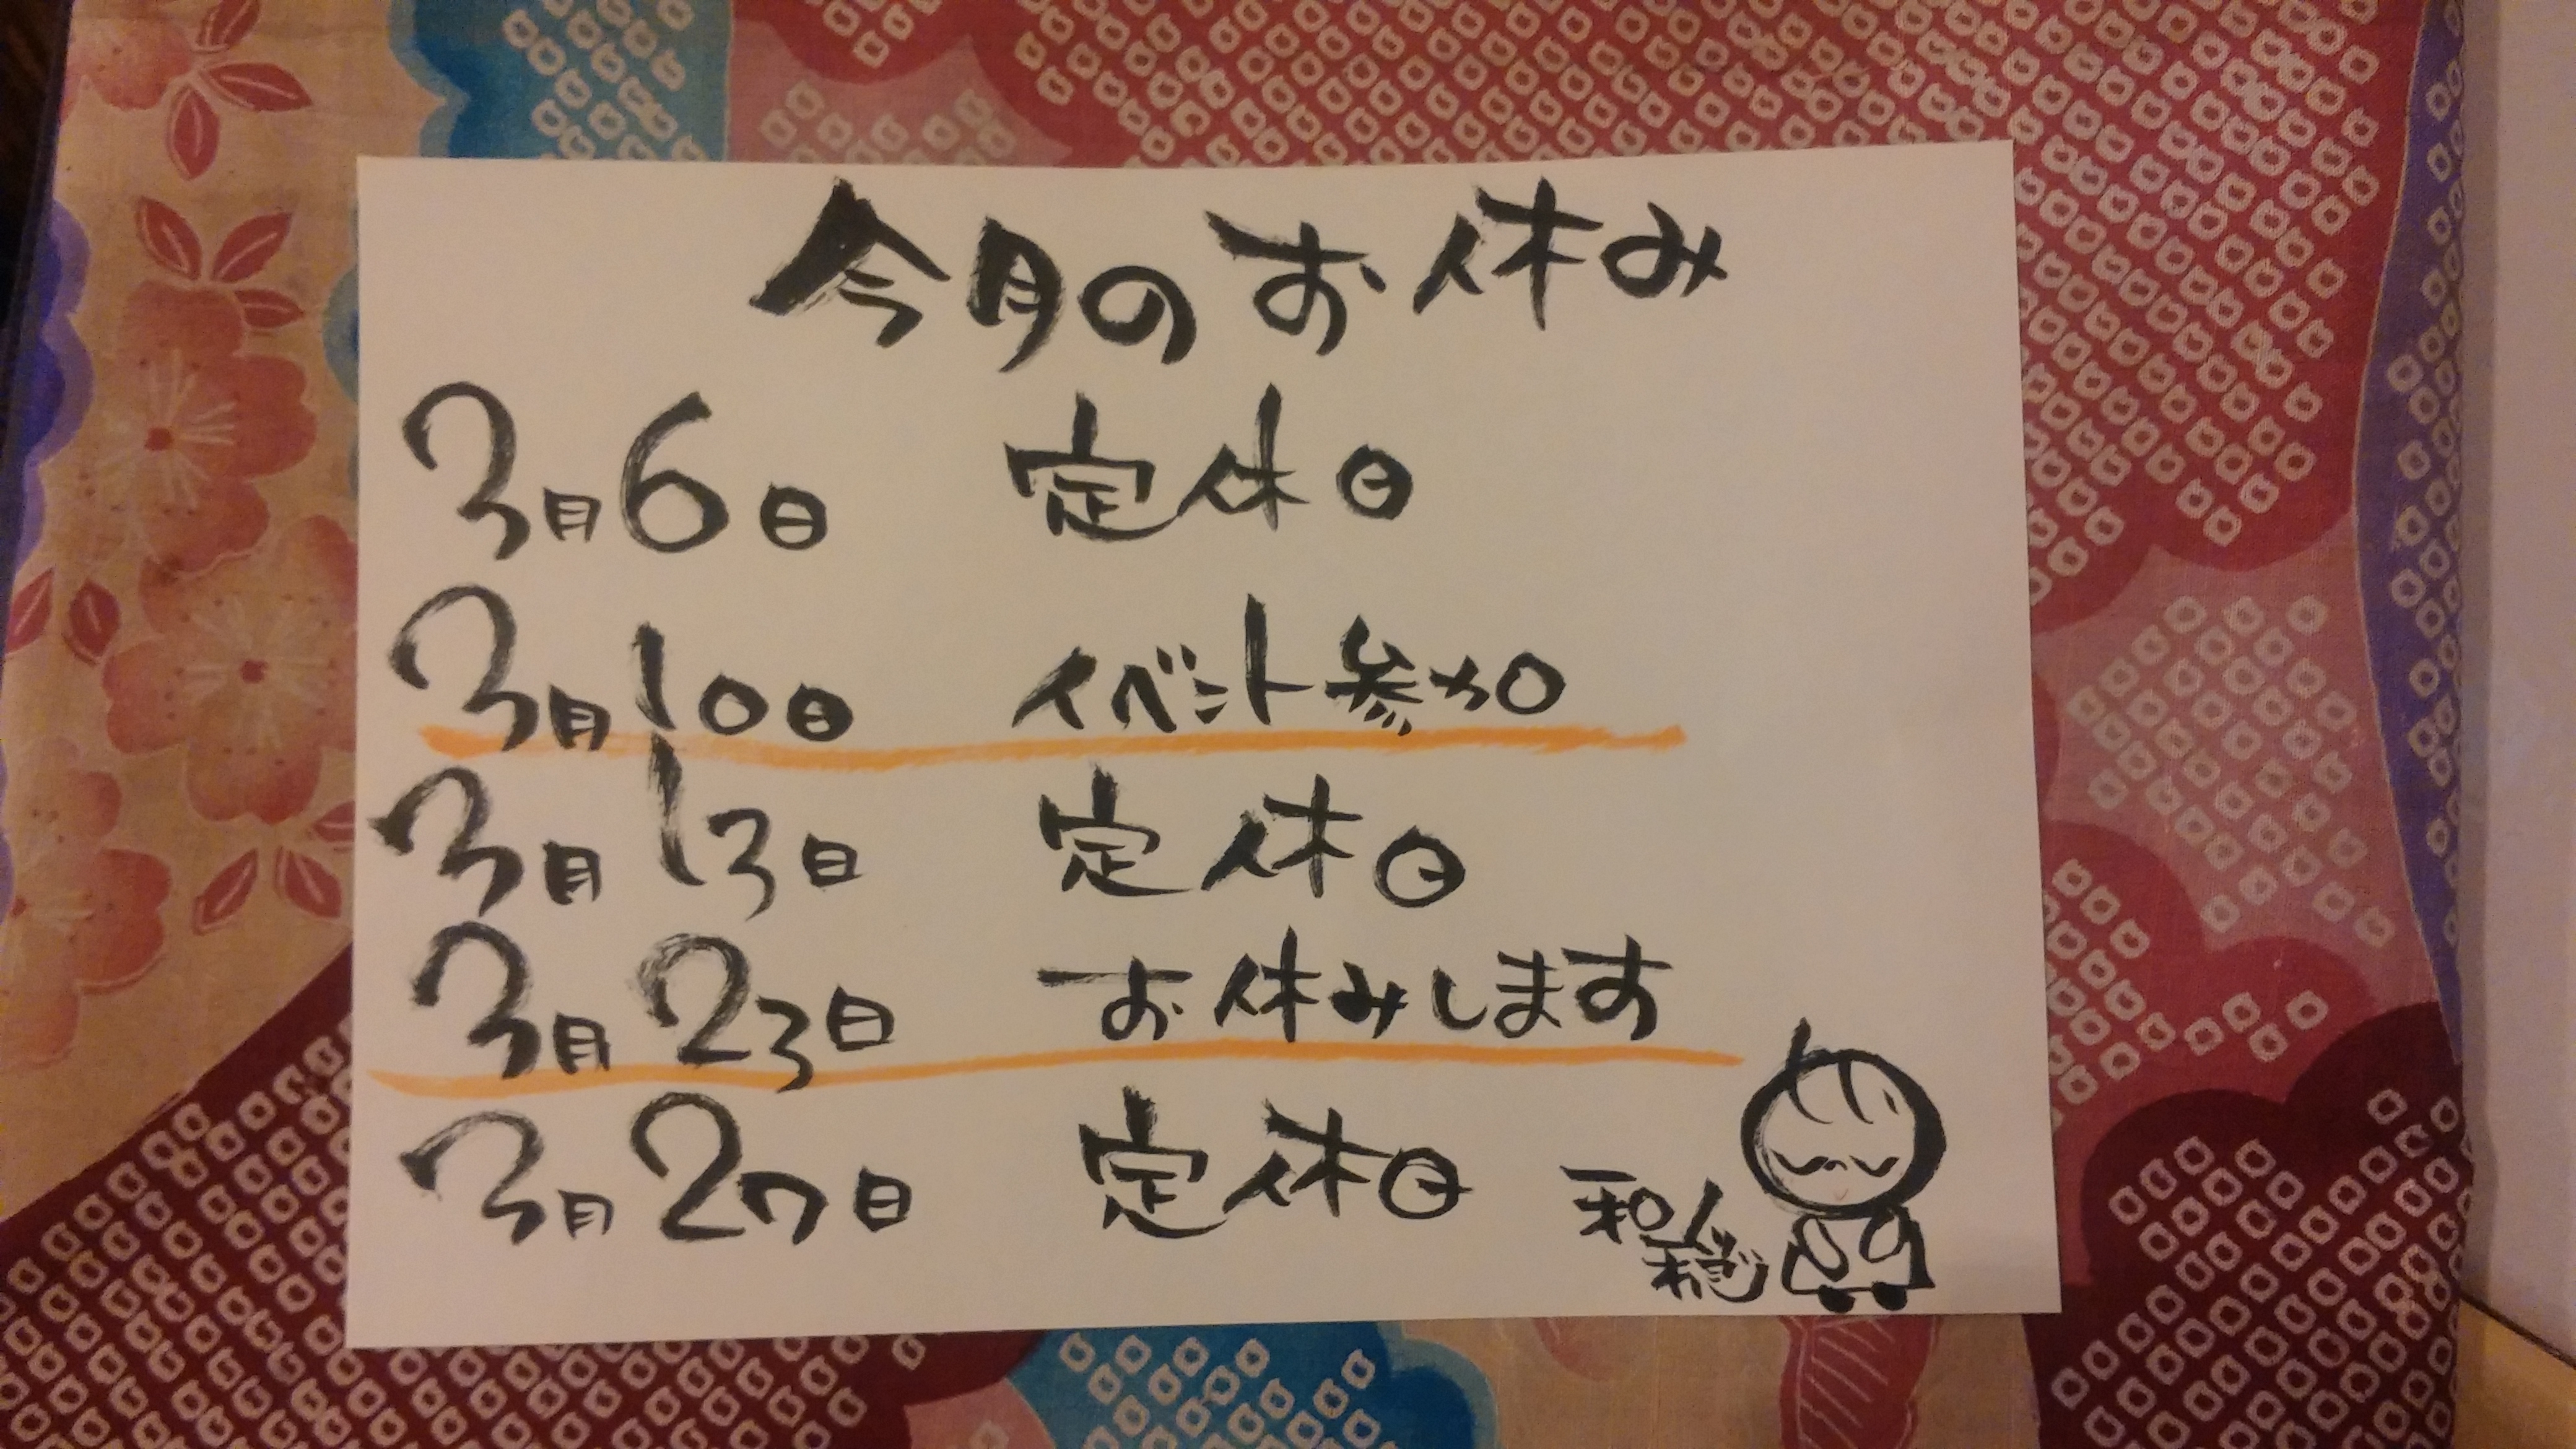 今月のお休み
3月6日 定休日
3月10日 イベント参加
3月13日 定休日
3月23日 お休みします
3月27日 定休日
和人